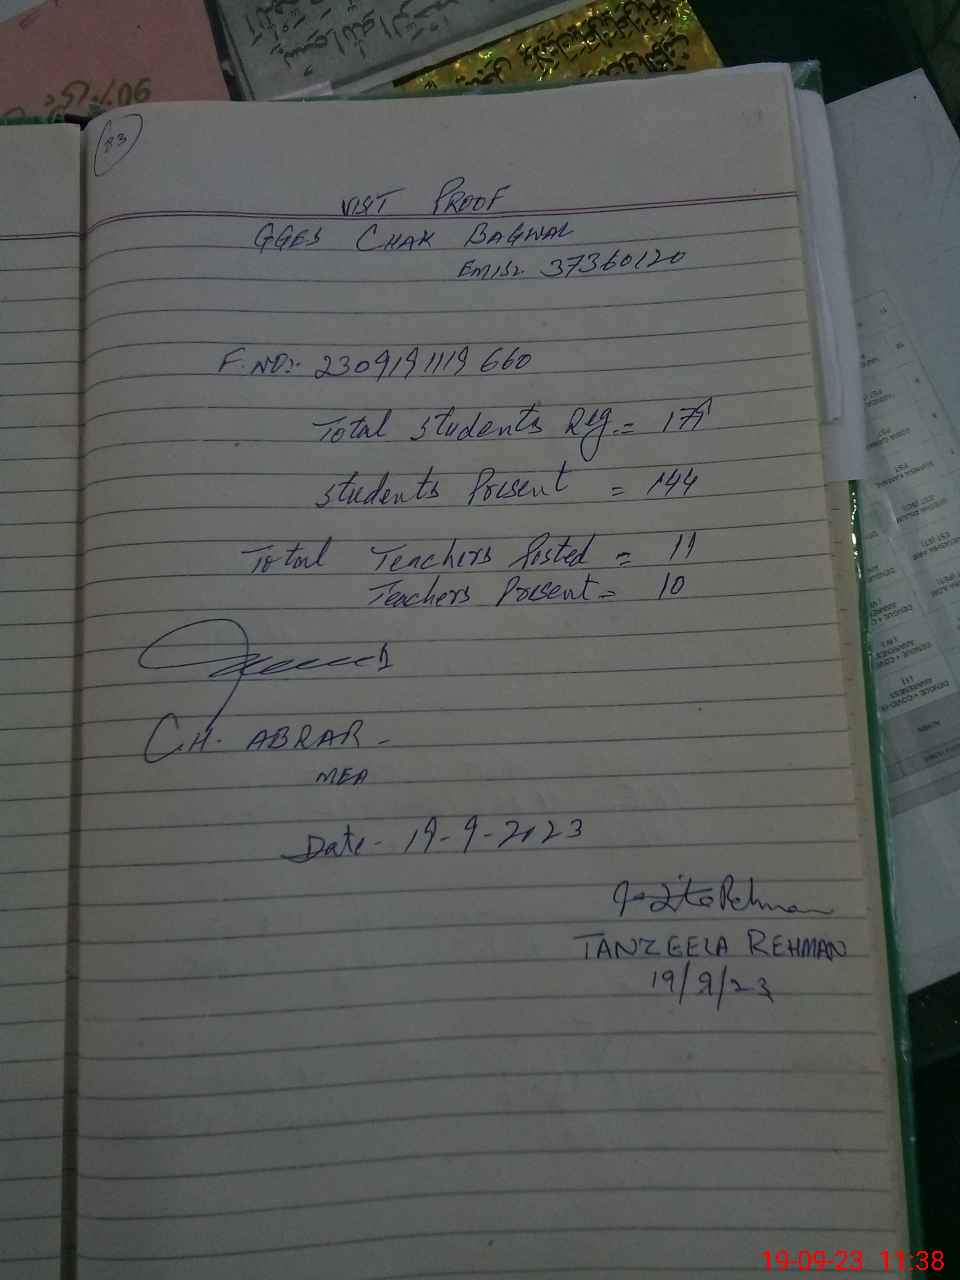 83
VISIT PROOF
GGES CHAK BAGWAL
EMIS:. 37360120
F. NO:- 230919 1119 660
Total students Reg. =
students Present = 144
Total Teachers Posted = 11
Teachers Present = 10
CH. ABRAR -
MEA
Date - 19-9-2023
TANZEELA REHMAN
19/9/23
19-09-23 11:38